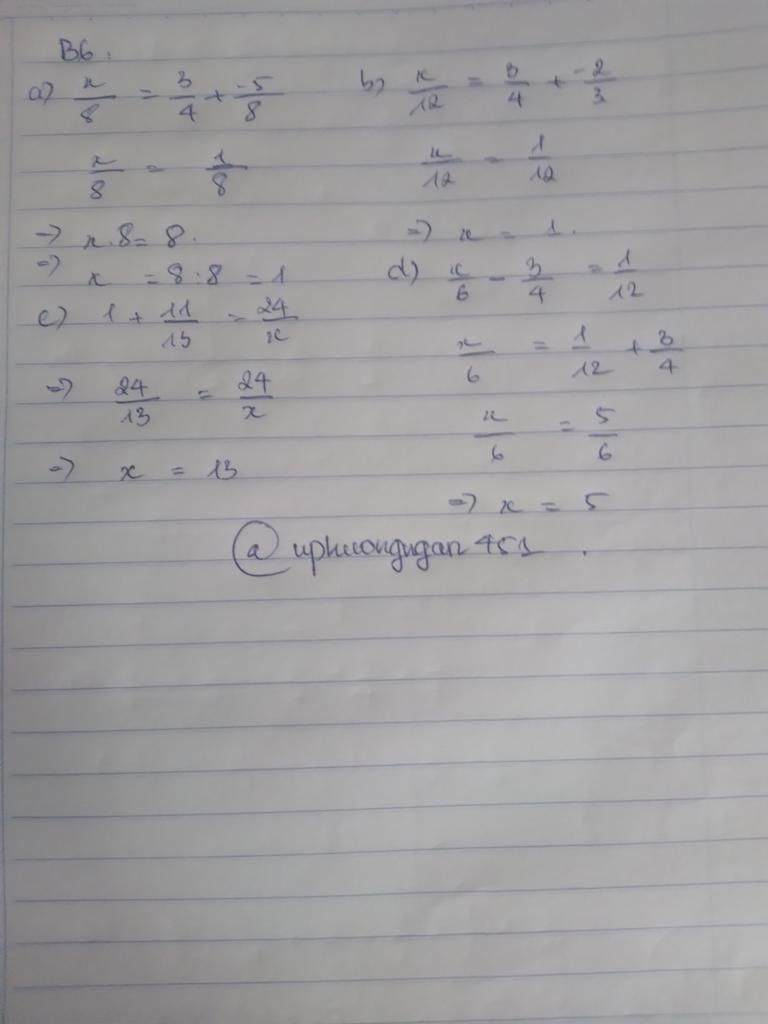 B6.
a) x/8 = 3/4 + -5/8
x/8 = 1/8
=> x.8 = 8.
=> x = 8:8 = 1
b) x/12 = 3/4 + -2/3
x/12 = 1/12
=> x = 1.
c) 1 + 11/13 = 24/x
=> 24/13 = 24/x
=> x = 13
d) x/6 - 3/4 = 1/12
x/6 = 1/12 + 3/4
x/6 = 5/6
=> x = 5